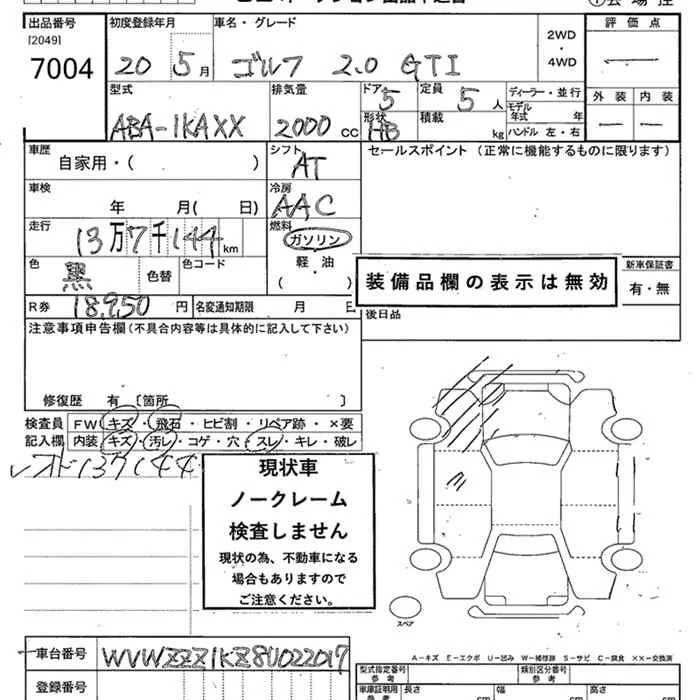 出品番号 初度登録年月 車名・グレード 評価点
[2049]
7004 20 5月 ゴルフ 2.0 GTI 2WD・4WD
型式 排気量 ドア 定員 ディーラー・並行 外装 内装
ABA-1KAXX 2000cc 5 5人 モデル年式 年
形状 HB 積載 kg ハンドル 左・右
車歴 シフト セールスポイント (正常に機能するものに限ります)
自家用・( ) AT
車検 冷房
年 月( 日) AAC
走行 燃料
13万7千144km ガソリン
色 色コード 軽・油 新車保証書
黒 色替 ( ) 装備品欄の表示は無効 有・無
R券 18,950円 名変通知期限 月 日 後日品
注意事項申告欄(不具合内容等は具体的に記入して下さい)
修復歴 有 〔箇所 〕
検査員 FW キズ・飛石・ヒビ割・リペア跡・×要
記入欄 内装 キズ・汚レ・コゲ・穴・スレ・キレ・破レ
137144
現状車
ノークレーム
検査しません
現状の為、不動車になる
場合もありますので
ご注意ください。
スペア
A-キズ E-エクボ U-凹み W-補修跡 S-サビ C-腐食 XX-交換済
車台番号 WVWZZZ1KZ8U022017 型式指定番号 類別区分番号
参考 参考
登録番号 車庫証明用 長さ 幅 高さ
参考 cm cm cm